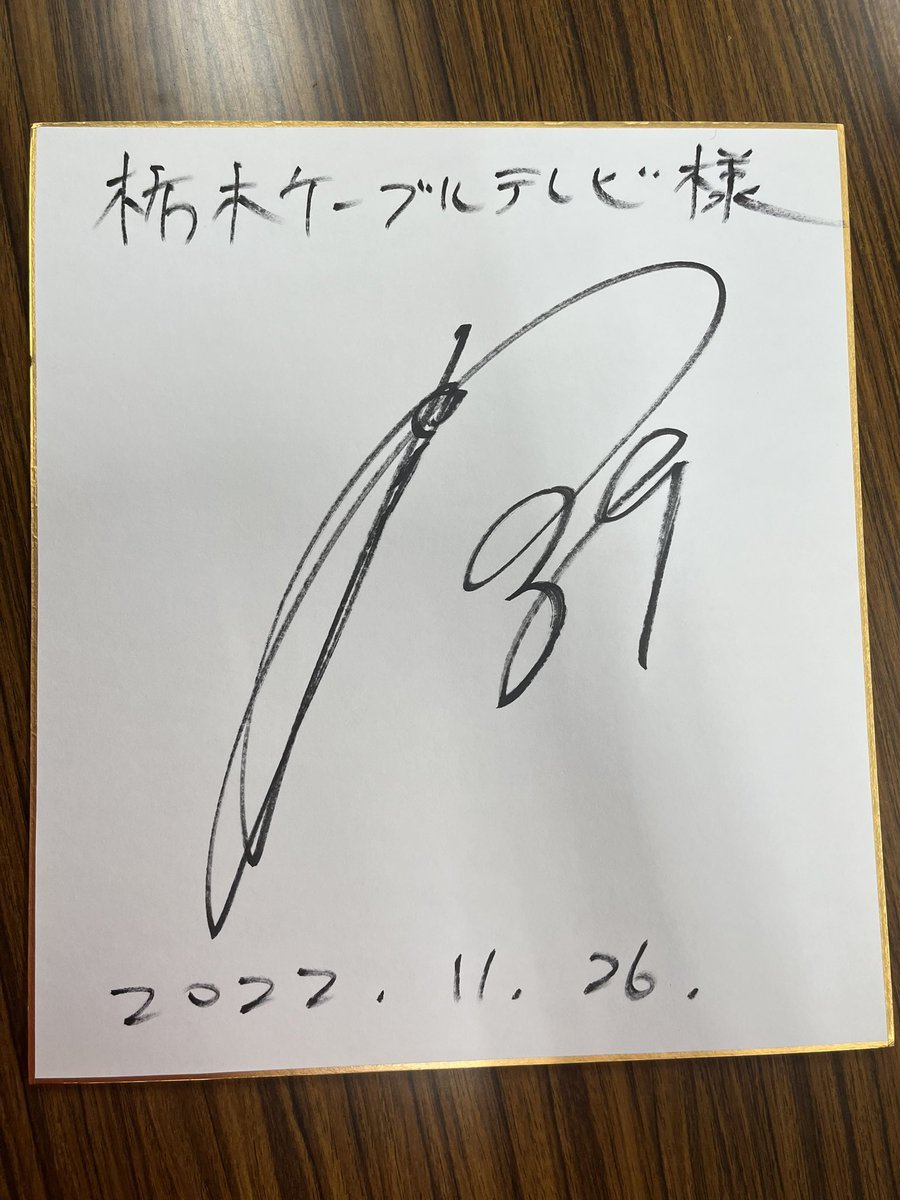 栃木ケーブルテレビ様
39
2022.11.26.